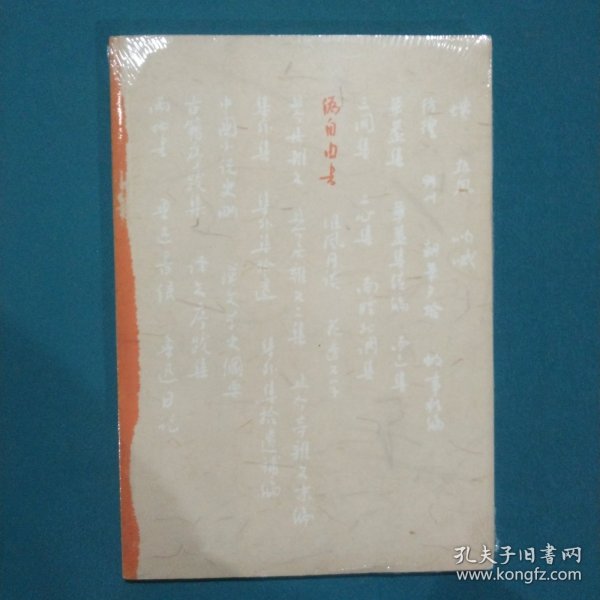 坟 热风 呐喊
彷徨 野草 朝花夕拾 故事新编
华盖集 华盖集续编 而已集
三闲集 二心集 南腔北调集
伪自由书 准风月谈 花边文学
且介亭杂文 且介亭杂文二集 且介亭杂文末编
集外集 集外集拾遗 集外集拾遗补编
中国小说史略 汉文学史纲要
古籍序跋集 译文序跋集
两地书 鲁迅书信 鲁迅日记
孔夫子旧书网
www.kongfz.com